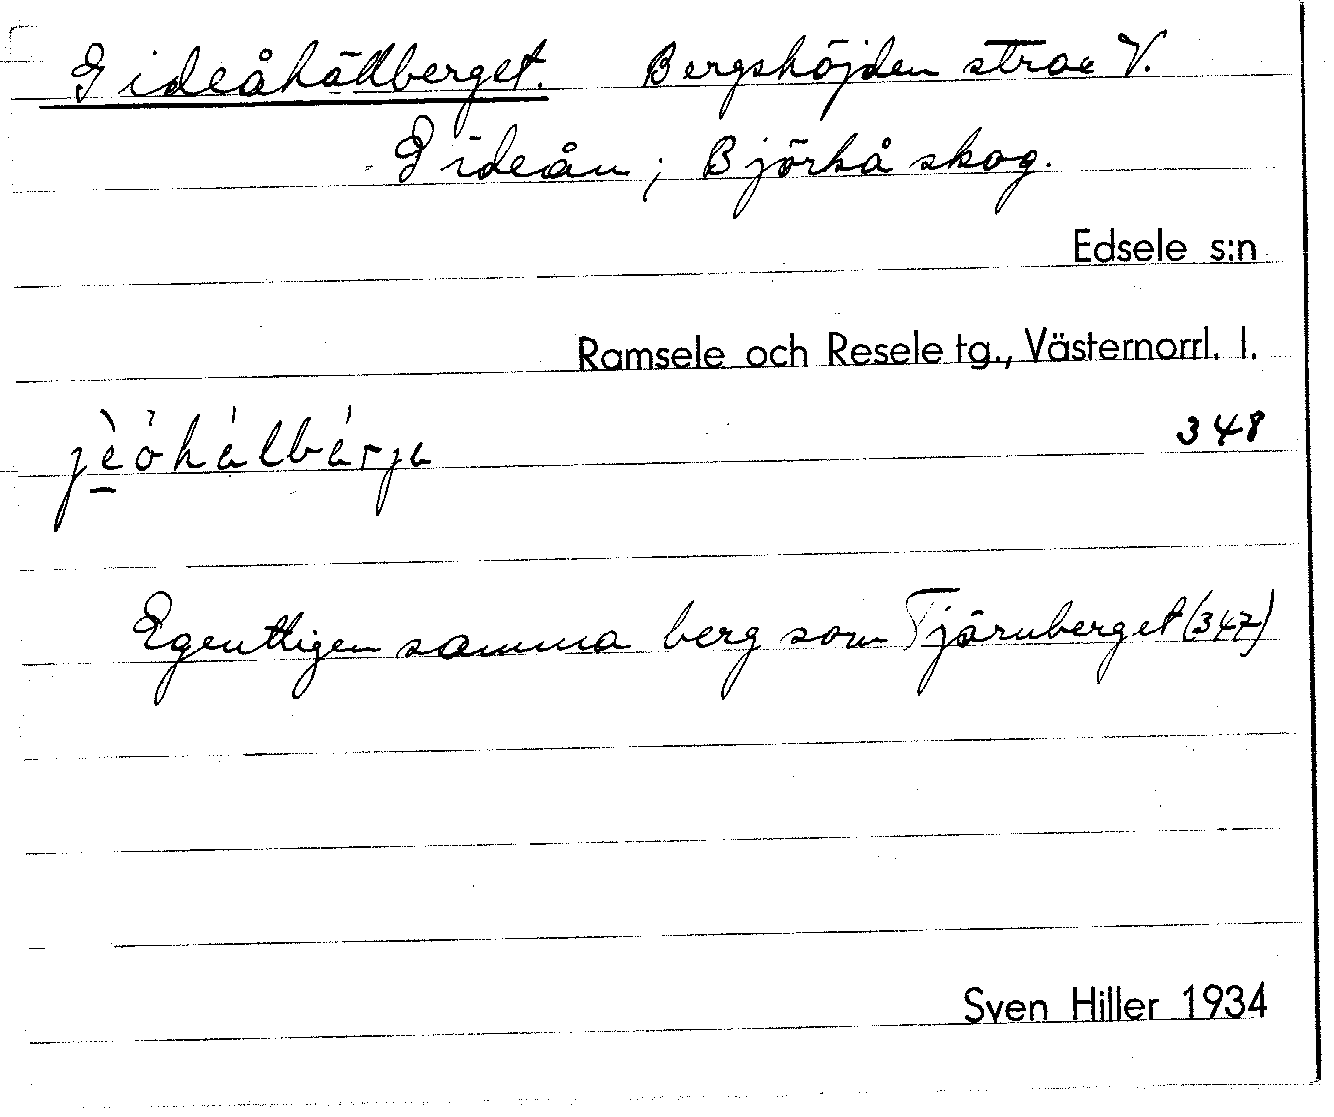 Gideåhällberget. Bergshöjden strax V.
Gideån; Björkå skog.
Edsele s:n
Ramsele och Resele tg., Västernorrl. l.
348
Egentligen samma berg som Tjärnberget (347)
Sven Hiller 1934